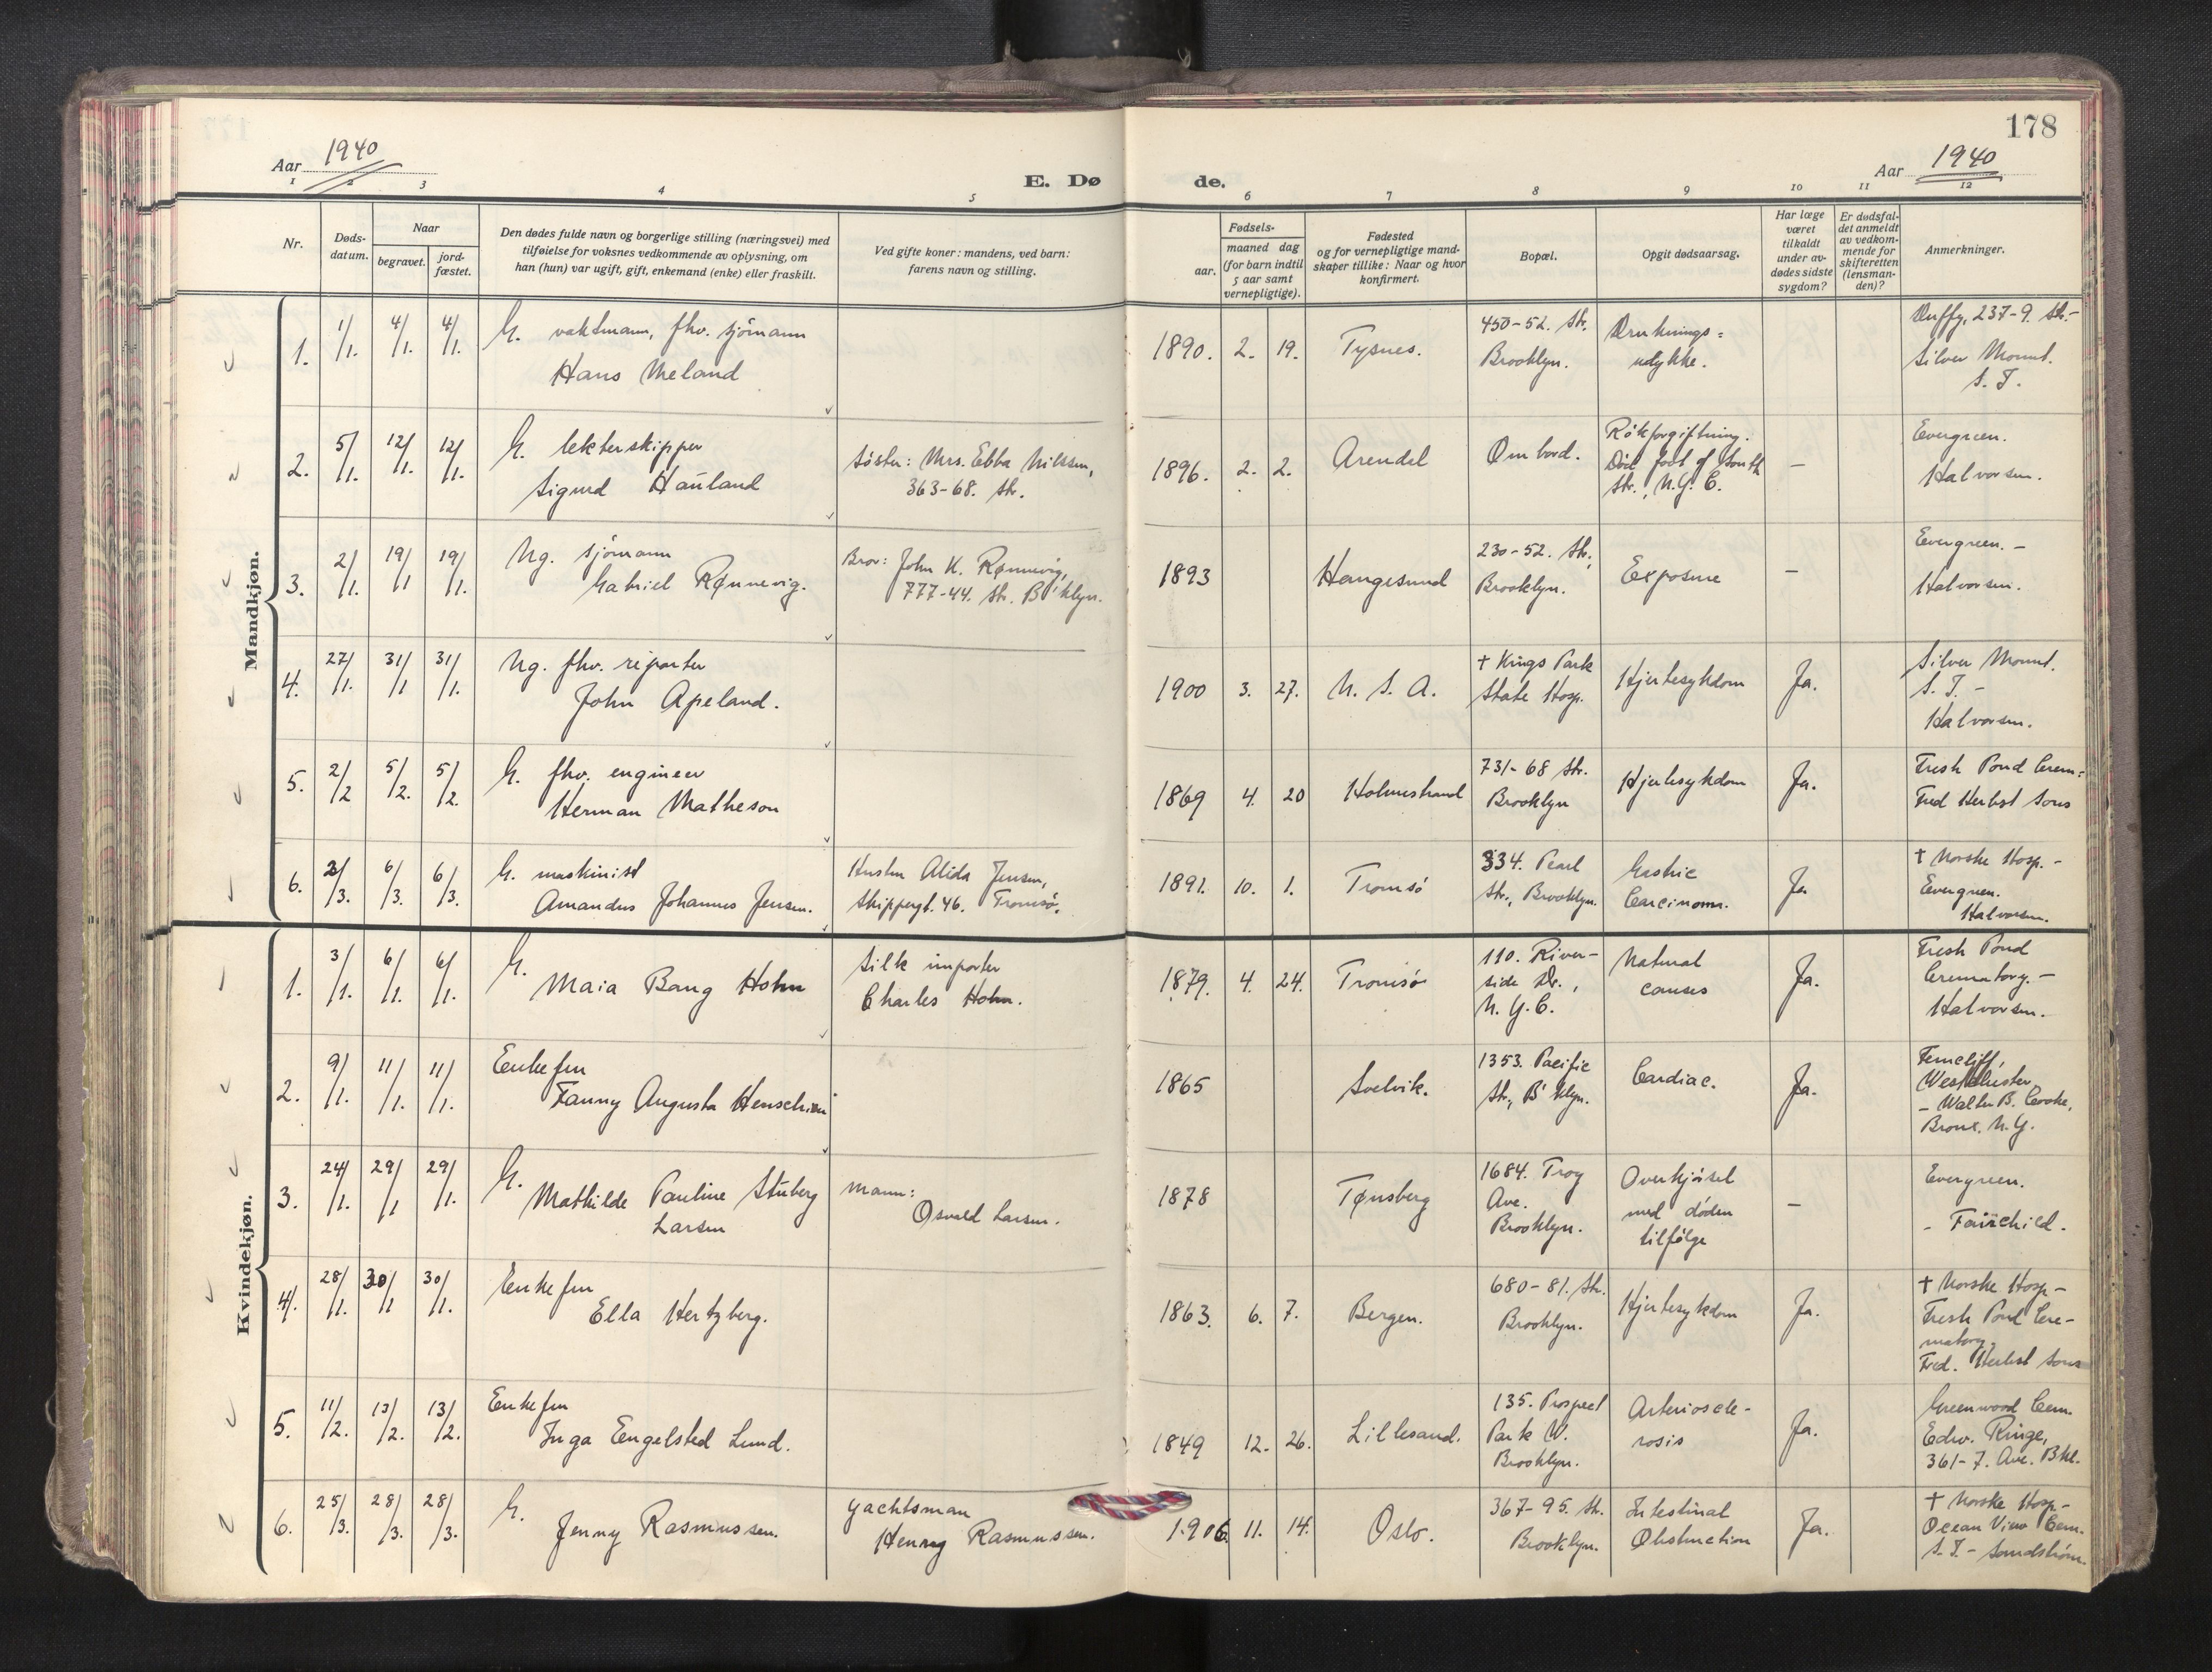 178
Aar 1940
E. Dø de.
Aar 1940
1 2 3 4 5 6 7 8 9 10 11 12
Nr.
Døds-
datum.
Naar
begravet.
jord-
fæstet.
Den dødes fulde navn og borgerlige stilling (næringsvei) med
tilføielse for voksnes vedkommende av oplysning, om
han (hun) var ugift, gift, enkemand (enke) eller fraskilt.
Ved gifte koner: mandens, ved barn:
farens navn og stilling.
Fødsels-
aar.
maaned dag
(for barn indtil
5 aar samt
vernepligtige).
Fødested
og for vernepligtige mand-
skaper tillike: Naar og hvor
konfirmert.
Bopæl.
Opgit dødsaarsag.
Har læge
været
tilkaldt
under av-
dødes sidste
sygdom?
Er dødsfal-
det anmeldt
av vedkom-
mende for
skifteretten
(lensman-
den)?
Anmerkninger.
Mandkjøn.
1. 1/1. 4/1. 4/1.
G. vaktmann, fhv. sjömann
Hans Meland
1890. 2. 19. Tysnes.
450-52. Str.
Brooklyn.
Druknings=
ulykke.
Duffy, 237-9. Str.-
Silver Mount.
S. I.
2. 5/1. 12/1. 12/1.
G. lekterskipper
Sigurd Hauland
Søster: Mrs. Ebba Nilssen,
363-68. Str.
1896. 2. 2. Arendal
Ombord.
Rökforgiftning.
Död foot of South
Str., N.Y.C.
–
Evergreen.
Halvorsen.
3. 2/1. 19/1 19/1.
Ug. sjömann
Gabriel Rønnevig.
Bror: John K. Rønnevig,
777-44. Str. B'klyn.
1893 Haugesund
230-52. Str.,
Brooklyn.
Exposure
–
Evergreen. –
Halvorsen.
4. 27/1. 31/1 31/1.
Ug. fhv. reporter
John Apeland.
1900 3. 27. U. S. A.
+ Kings Park
State Hosp.
Hjertesykdom
Ja.
Silver Mount.
S. I. –
Halvorsen.
5. 2/2 5/2. 5/2.
G. fhv. engineer
Herman Matheson
1869 4. 20 Holmestrand
731-68 Str.
Brooklyn
Hjertesykdom
Ja.
Fresh Pond Crem=
Fred Herbst Sons
6. 2/3. 6/3. 6/3.
G. maskinist
Amandus Johannes Jensen.
Hustru Alida Jensen,
Skippergt. 46. Tromsö.
1891. 10. 1. Tromsö
334. Pearl
Str., Brooklyn.
Gastric
Carcinoma.
Ja
+ Norske Hosp. –
Evergreen.
Halvorsen.
Kvindekjøn.
1. 3/1. 6/1. 6/1.
G.
Maia Bang Hohn
Silk importer
Charles Hohn.
1879. 4. 24. Tromsö
110. River-
side Dr.,
N. Y. C.
Natural
causes
Ja.
Fresh Pond
Crematory. –
Halvorsen.
2. 9/1. 11/1. 11/1.
Enkefru
Fanny Augusta Henschien
1865 Svelvik.
1353. Pacific
Str., B'klyn.
Cardiac.
Ja.
Ferncliff,
Westchester
– Walter B. Cooke,
Bronx. N.Y.
3. 24/1. 29/1 29/1.
G.
Mathilde Pauline Stuberg
Larsen
Mann:
Osvald Larsen.
1878 Tønsberg
1684. Troy
Ave.
Brooklyn.
Overkjörsel
med döden
tilfölge
–
Evergreen.
– Fairchild.
4. 28/1. 30/1 30/1.
Enkefru
Ella Hertzberg.
1863. 6. 7. Bergen.
680-81. Str.
Brooklyn.
Hjertesykdom
Ja.
+ Norske Hosp –
Fresh Pond Cre-
matory.
Fred. Herbst Sons
5. 11/2. 13/2. 13/2.
Enkefru
Inga Engelsted Lund.
1849 12. 26. Lillesand.
135. Prospect
Park W.
Brooklyn.
Arterioscle-
rosis
Ja.
Greenwood Cem.
Edw. Ringe,
361-7. Ave. Bkl.
6. 25/3. 28/3. 28/3.
G.
Jenny Rasmussen.
Yachtsman
Henry Rasmussen.
1906. 11. 14. Oslo.
367-95. Str.
Brooklyn.
Intestinal
Obstruction
Ja.
+ Norske Hosp –
Ocean View Cem.
S. I. – Sandström.